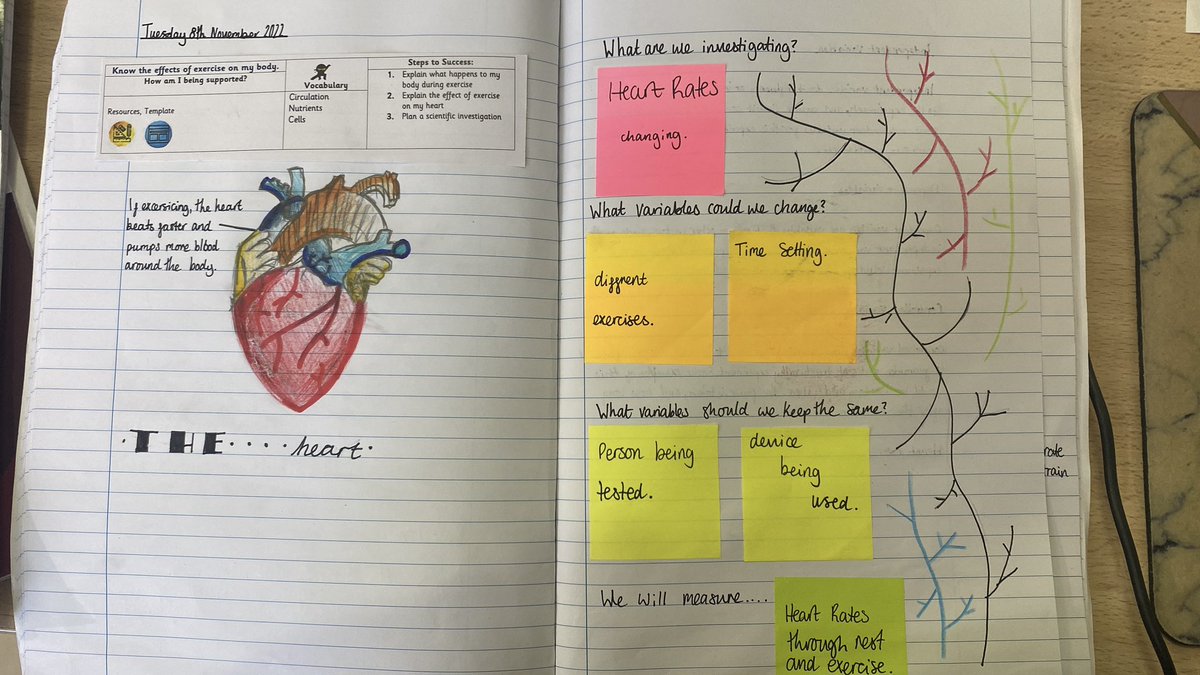 Tuesday 8th November 2022
Know the effects of exercise on my body.
How am I being supported?
Resources, Template
Vocabulary
Circulation
Nutrients
Cells
Steps to Success:
1. Explain what happens to my
body during exercise
2. Explain the effect of exercise
on my heart
3. Plan a scientific investigation
If excersicing, the heart
beats faster and
pumps more blood
around the body.
·THE····heart·
What are we investigating?
Heart Rates
changing.
What variables could we change?
diffrent
exercises.
Time Setting.
What variables should we keep the same?
Person being
tested.
device
being
used.
We will measure....
Heart Rates
through rest
and exercise.